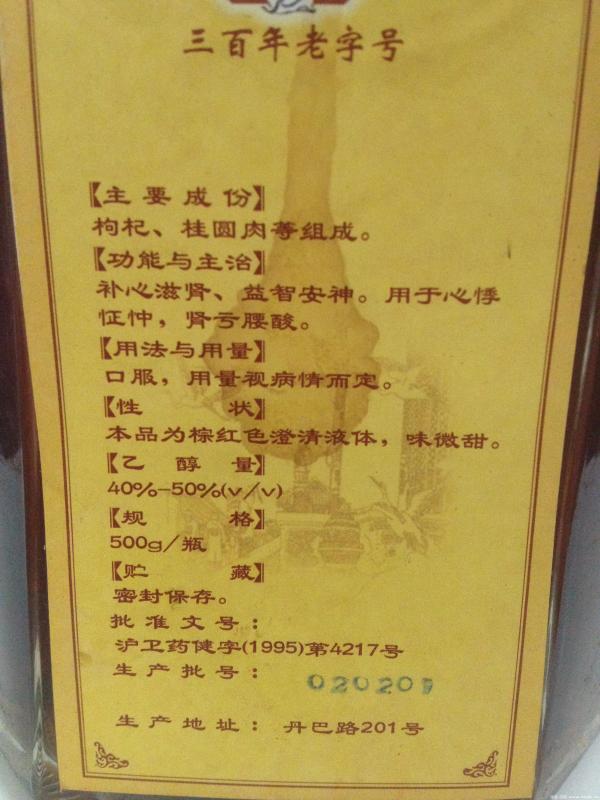 三百年老字号
【主要成份】
枸杞、桂圆肉等组成。
【功能与主治】
补心滋肾、益智安神。用于心悸
怔忡，肾亏腰酸。
【用法与用量】
口服，用量视病情而定。
【性状】
本品为棕红色澄清液体，味微甜。
【乙醇量】
40%-50%(v/v)
【规格】
500g/瓶
【贮藏】
密封保存。
批准文号：
沪卫药健字(1995)第4217号
生产批号：
020201
生产地址：丹巴路201号